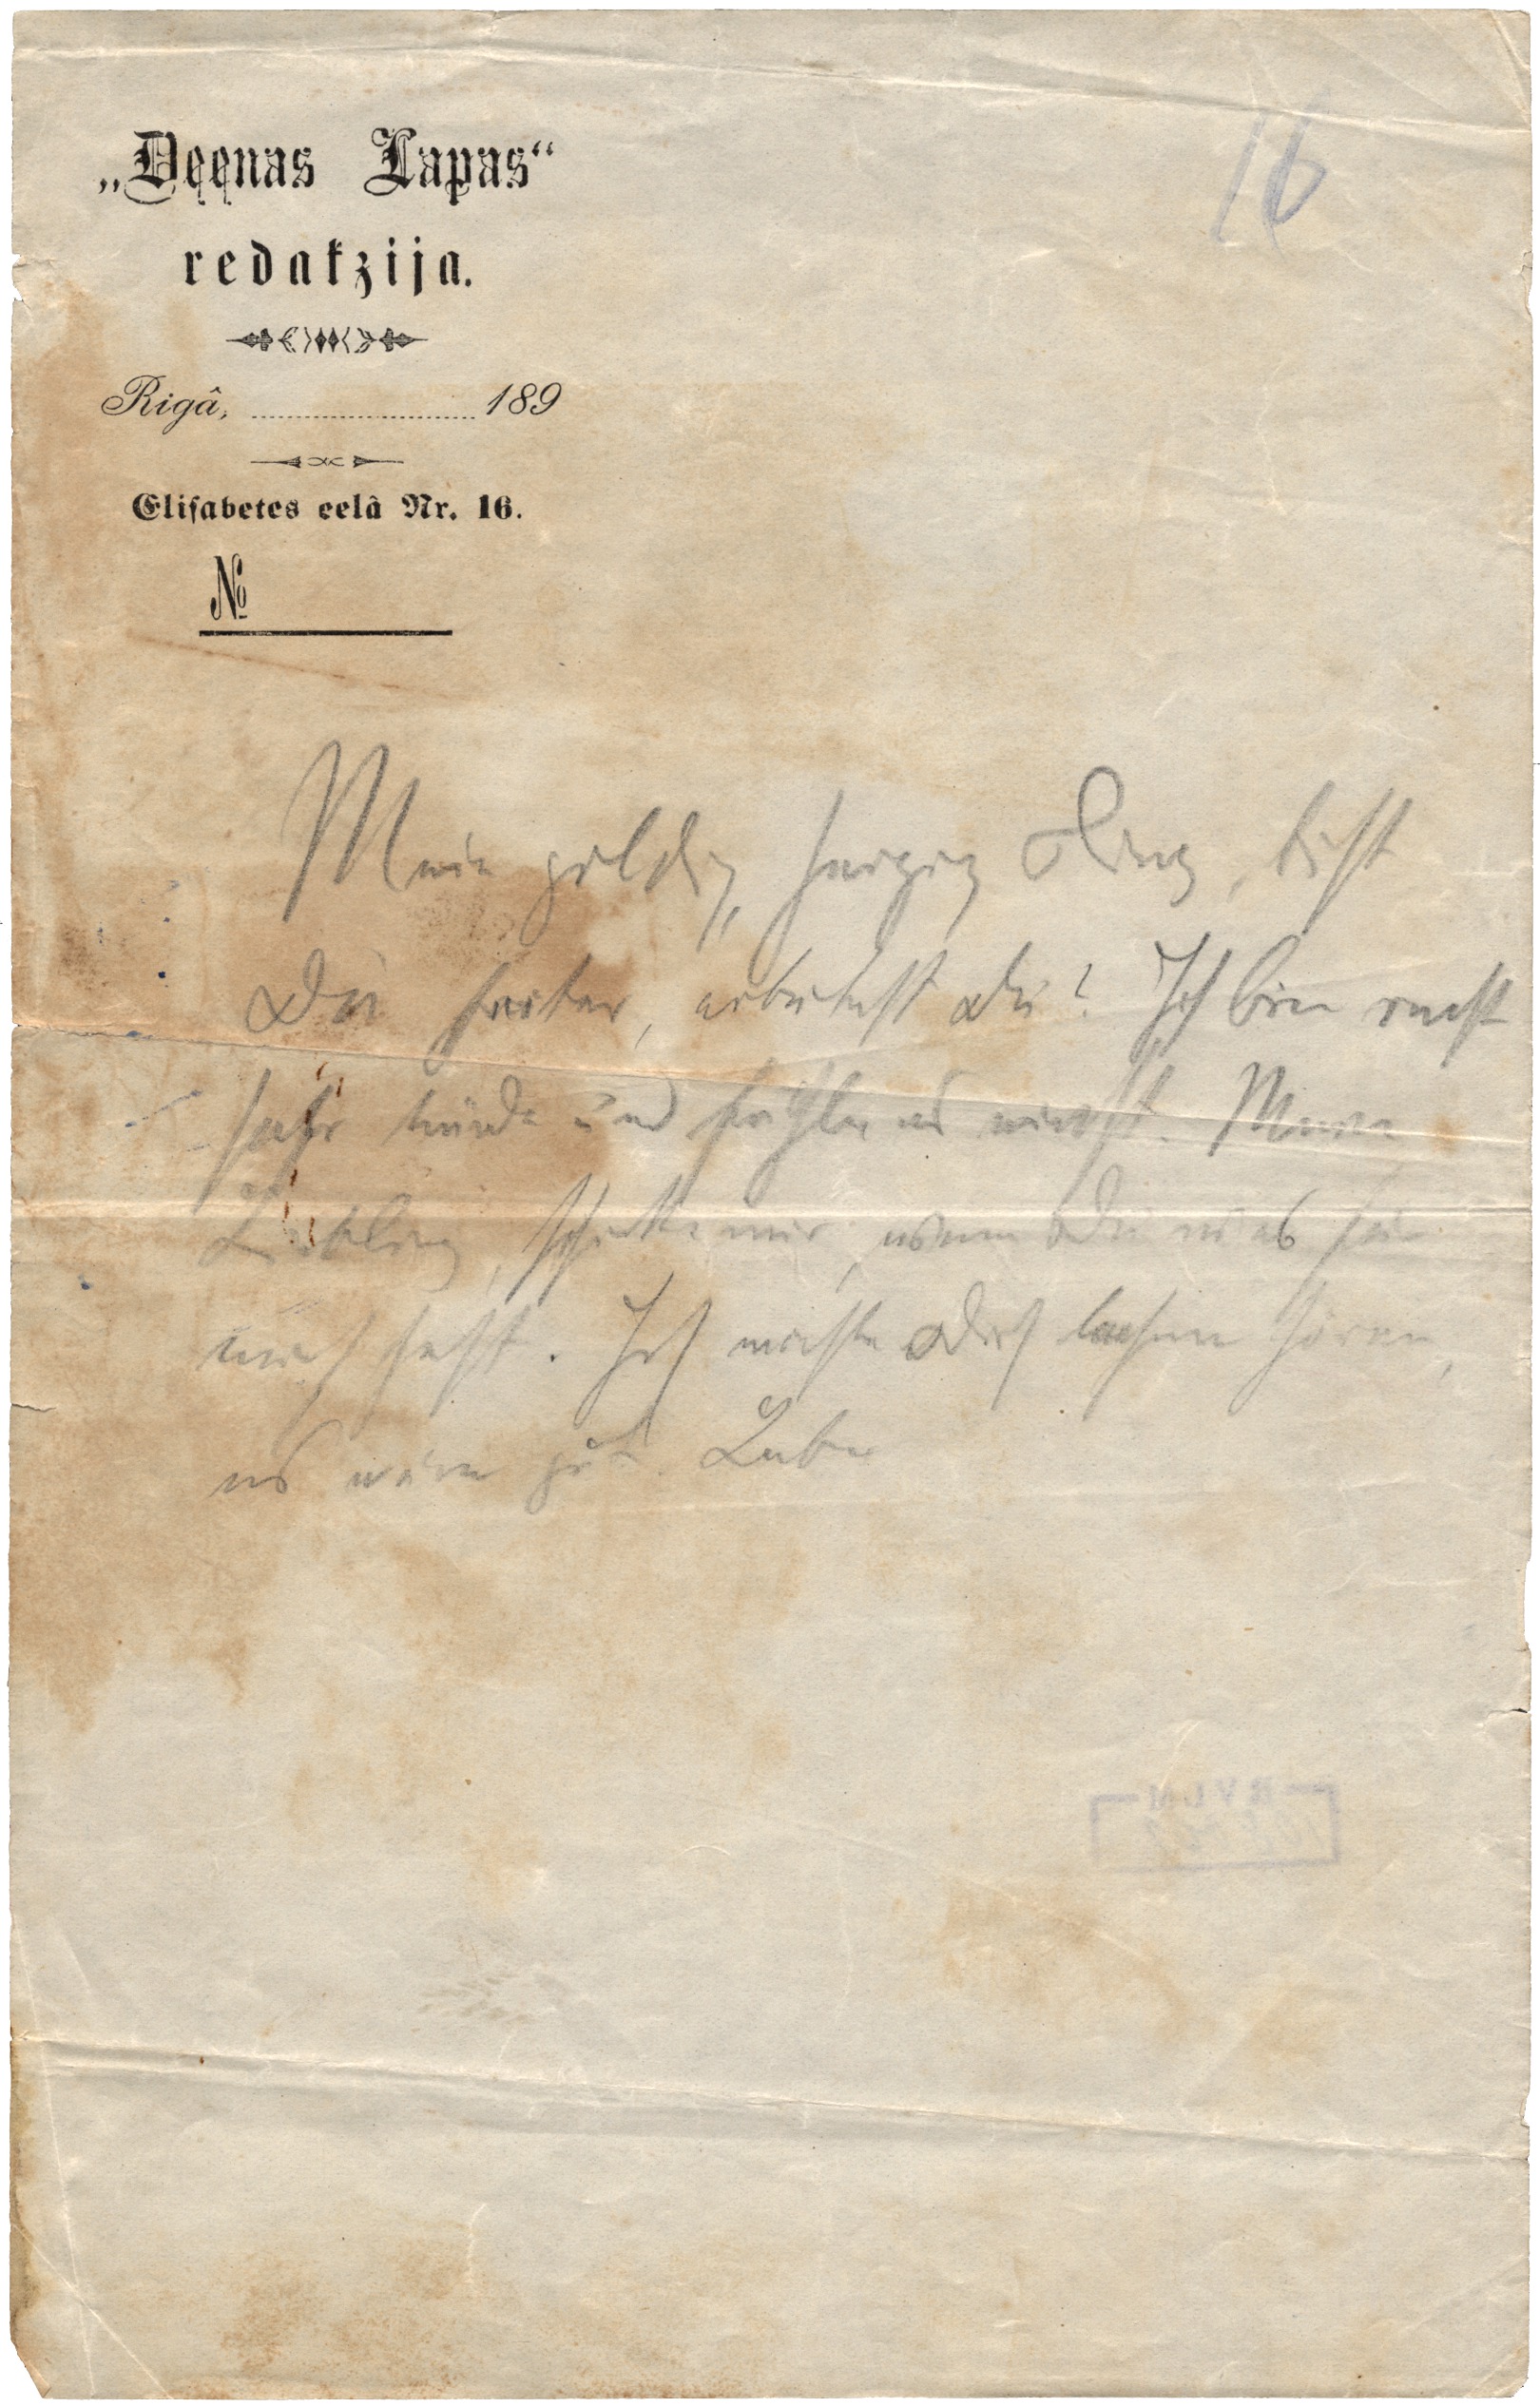 16
„Deenas Lapas“
redakzija.
Rigâ, 189
Elisabetes eelâ Nr. 16.
№
Mein goldig, herzig Ding, bist
Du heiter, arbeitest Du? Ich bin recht
sehr müde und fühle es nicht. Mein
Liebling, schicke mir, wenn Du was für
mich hast. Ich möchte Dich lachen hören,
es wäre gut. Lebe